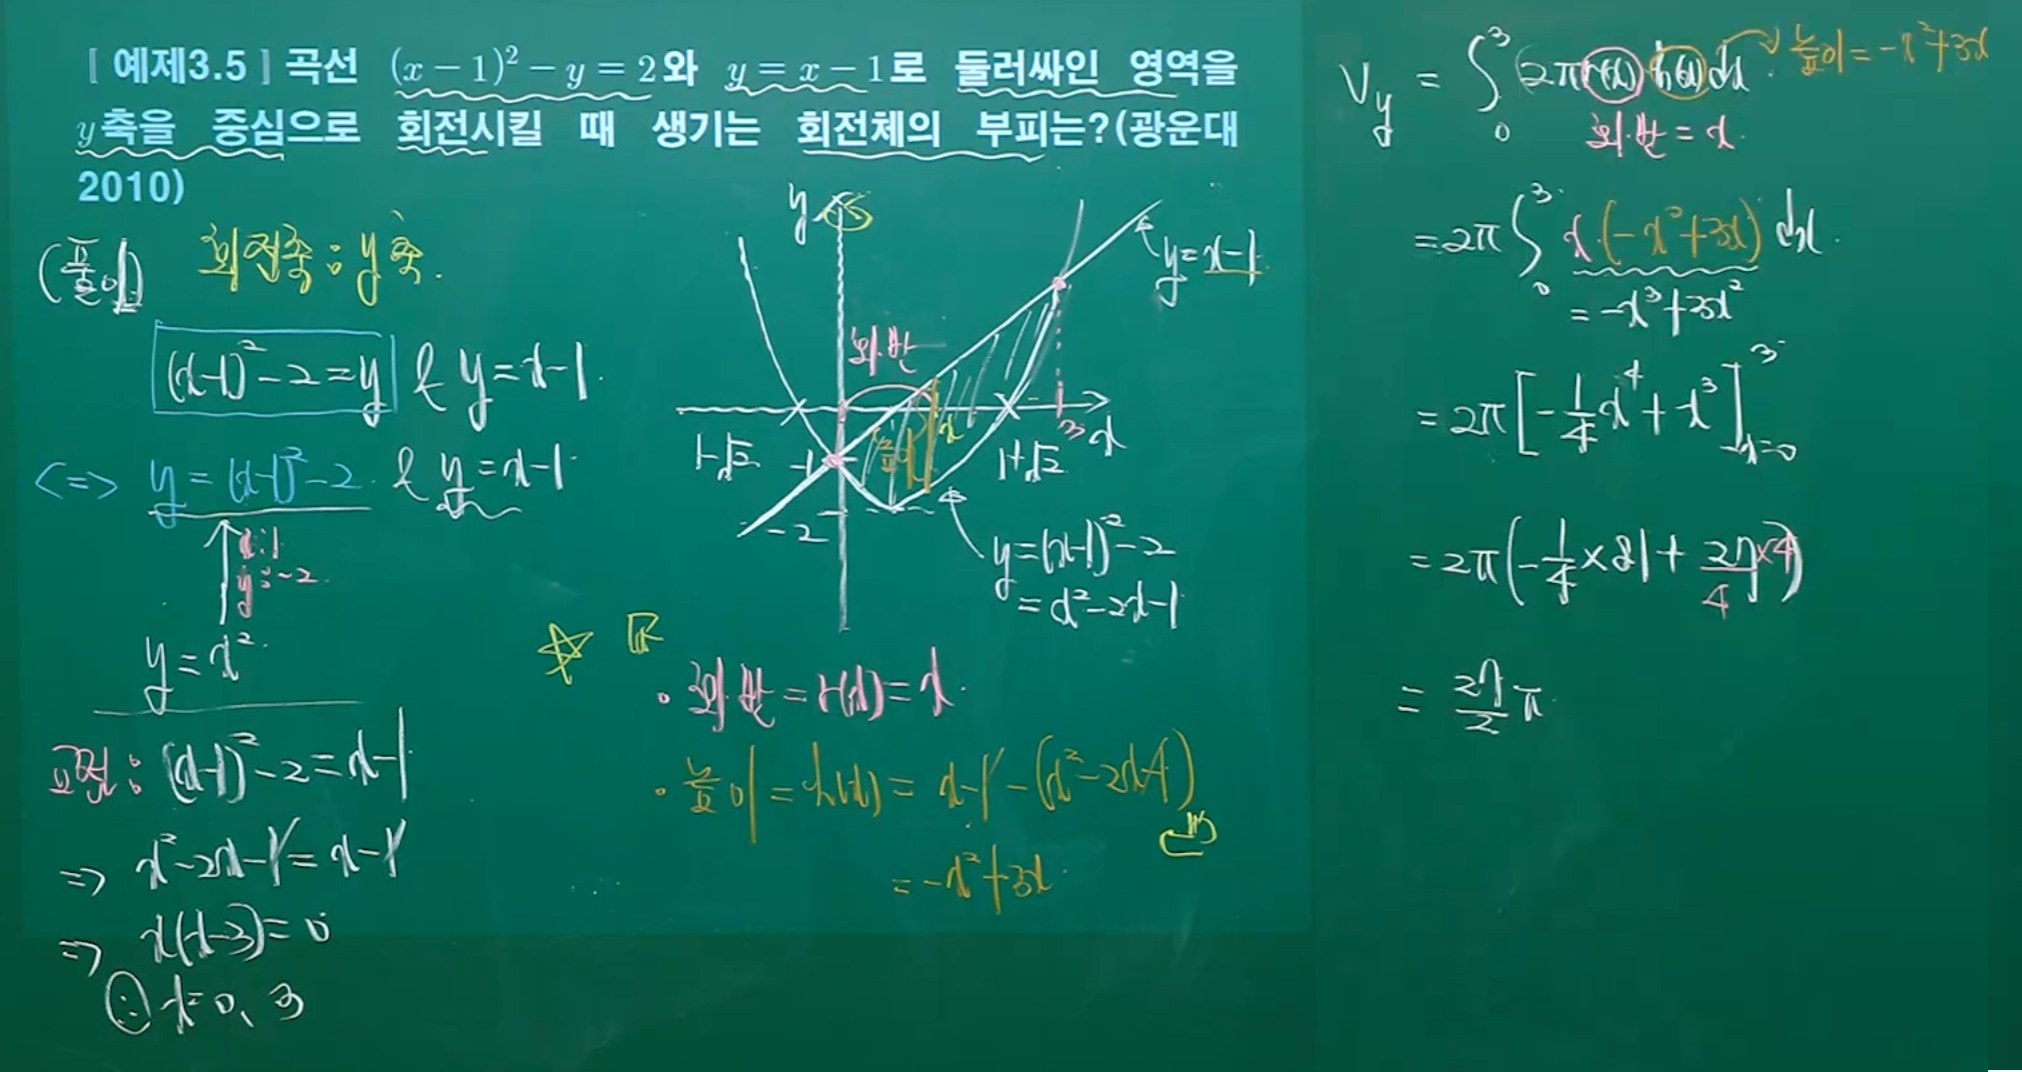 [ 예제3.5 ] 곡선 (x − 1)² − y = 2와 y = x − 1로 둘러싸인 영역을
y축을 중심으로 회전시킬 때 생기는 회전체의 부피는?(광운대
2010)
(풀이) 회전축 : y축.
(x-1)²-2=y & y=x-1.
<=> y=(x-1)²-2 & y=x-1
x:1
y:-2
y=x²
교점 : (x-1)²-2=x-1
=> x²-2x-1=x-1
=> x(x-3)=0
∴ x=0, 3
y
y=x-1
회.반
높이
x
3
x
1-√2
-1
1+√2
-2
y=(x-1)²-2
=x²-2x-1
☆
• 회.반=r(x)=x.
• 높이=h(x)=x-1-(x²-2x-1)
=-x²+3x.
V_y = ∫₀³ 2π r(x) h(x) dx. → 높이=-x²+3x
회.반=x.
=2π ∫₀³ x·(-x²+3x) dx.
=-x³+3x²
=2π[-1/4 x⁴+x³]³ₓ₌₀
=2π(-1/4×81+27×4/4)
= 27/2 π